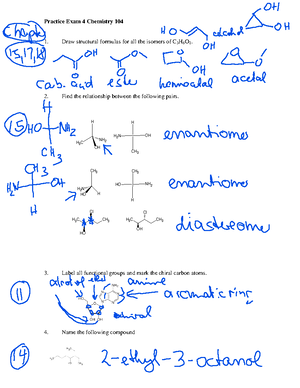 Practice Exam 4 Chemistry 104
Chapter
15,17,18
HO
alcohol
OH
1. Draw structural formulas for all the isomers of C3H6O2.
O
OH
O
O
O
OH
O
O
carb. acid
ester
hemiacetal
acetal
2. Find the relationship between the following pairs.
15
H
HO
NH2
CH3
H
H3C
NH2
OH
H2N
OH
enantiomer
CH3
H2N
OH
H
enantiomer
Cl
H3C
CH3
HO
Cl
H3C
CH3
OH
diastereomer
3. Label all functional groups and mark the chiral carbon atoms.
11
amine
aromatic ring
chiral
4. Name the following compound
14
2-ethyl-3-octanol